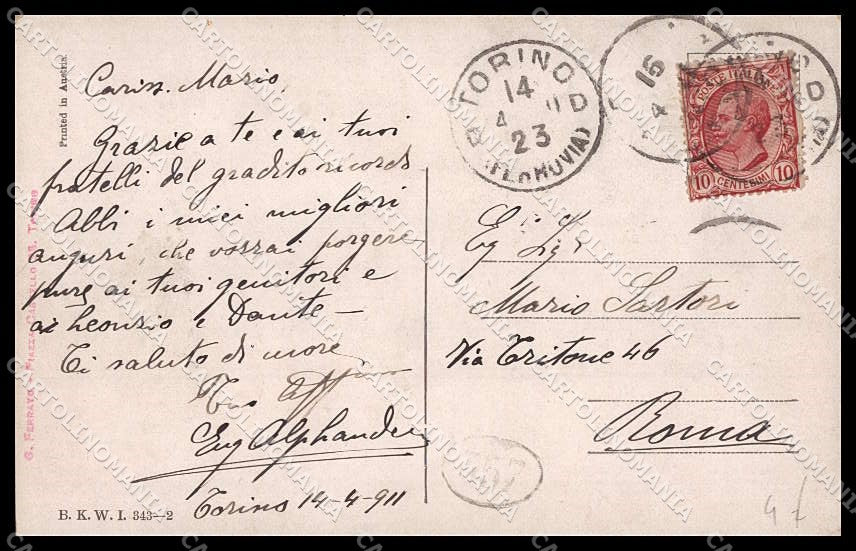 Printed in Austria.
Cariss. Mario,
Grazie a te e ai tuoi
fratelli del gradito ricordo
Abbi i miei migliori
auguri, che vorrai porgere
pure ai tuoi genitori e
a Leonzio e Dante —
Ti saluto di cuore
Tuo
Eug Alphandei
Torino 14-4-911
B. K. W. I. 343—2
G. FERRATO - PIAZZA
TORINO
14
4
23
(FERROVIA)
16
4
POSTE ITALIANE
10 CENTESIMI 10
Eg. Sig.
Mario Sartori
Via Tritone 46
Roma
CARTOLINOMANIA